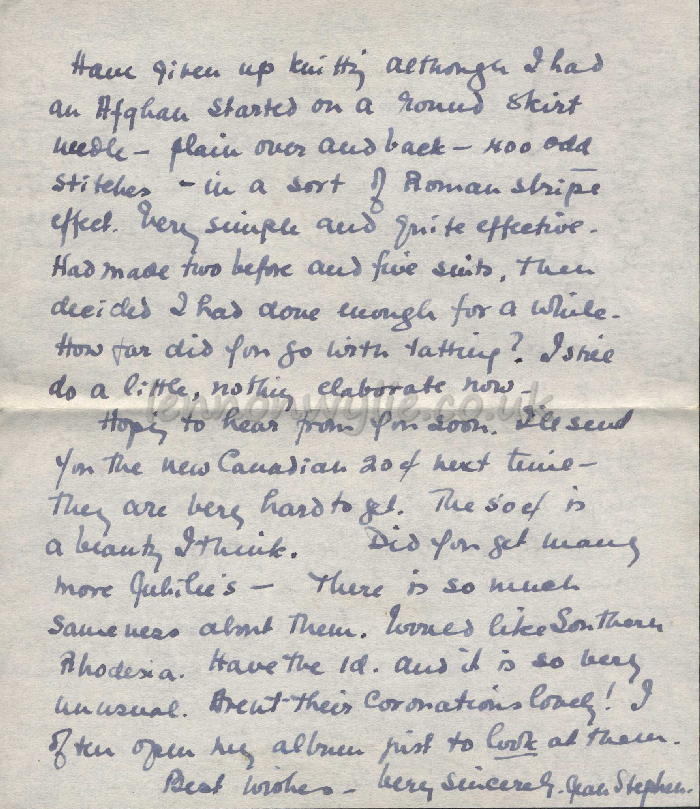 Have given up knitting although I had
an Afghan started on a round skirt
needle - plain over and back - 400 odd
stitches - in a sort of Roman stripe
effect. Very simple and quite effective.
Had made two before and five suits, then
decided I had done enough for a while.
How far did you go with tatting? I still
do a little, nothing elaborate now -
lennonwylie.co.uk
Hoping to hear from you soon. I'll send
you the new Canadian 20¢ next time -
they are very hard to get. The 50¢ is
a beauty I think. Did you get many
more Jubilee's - There is so much
sameness about them. Would like Southern
Rhodesia. Have the 1d. and it is so very
unusual. Arent their Coronations lovely! I
often open my album just to look at them.
Best wishes - Very sincerely. Jean Stephen.